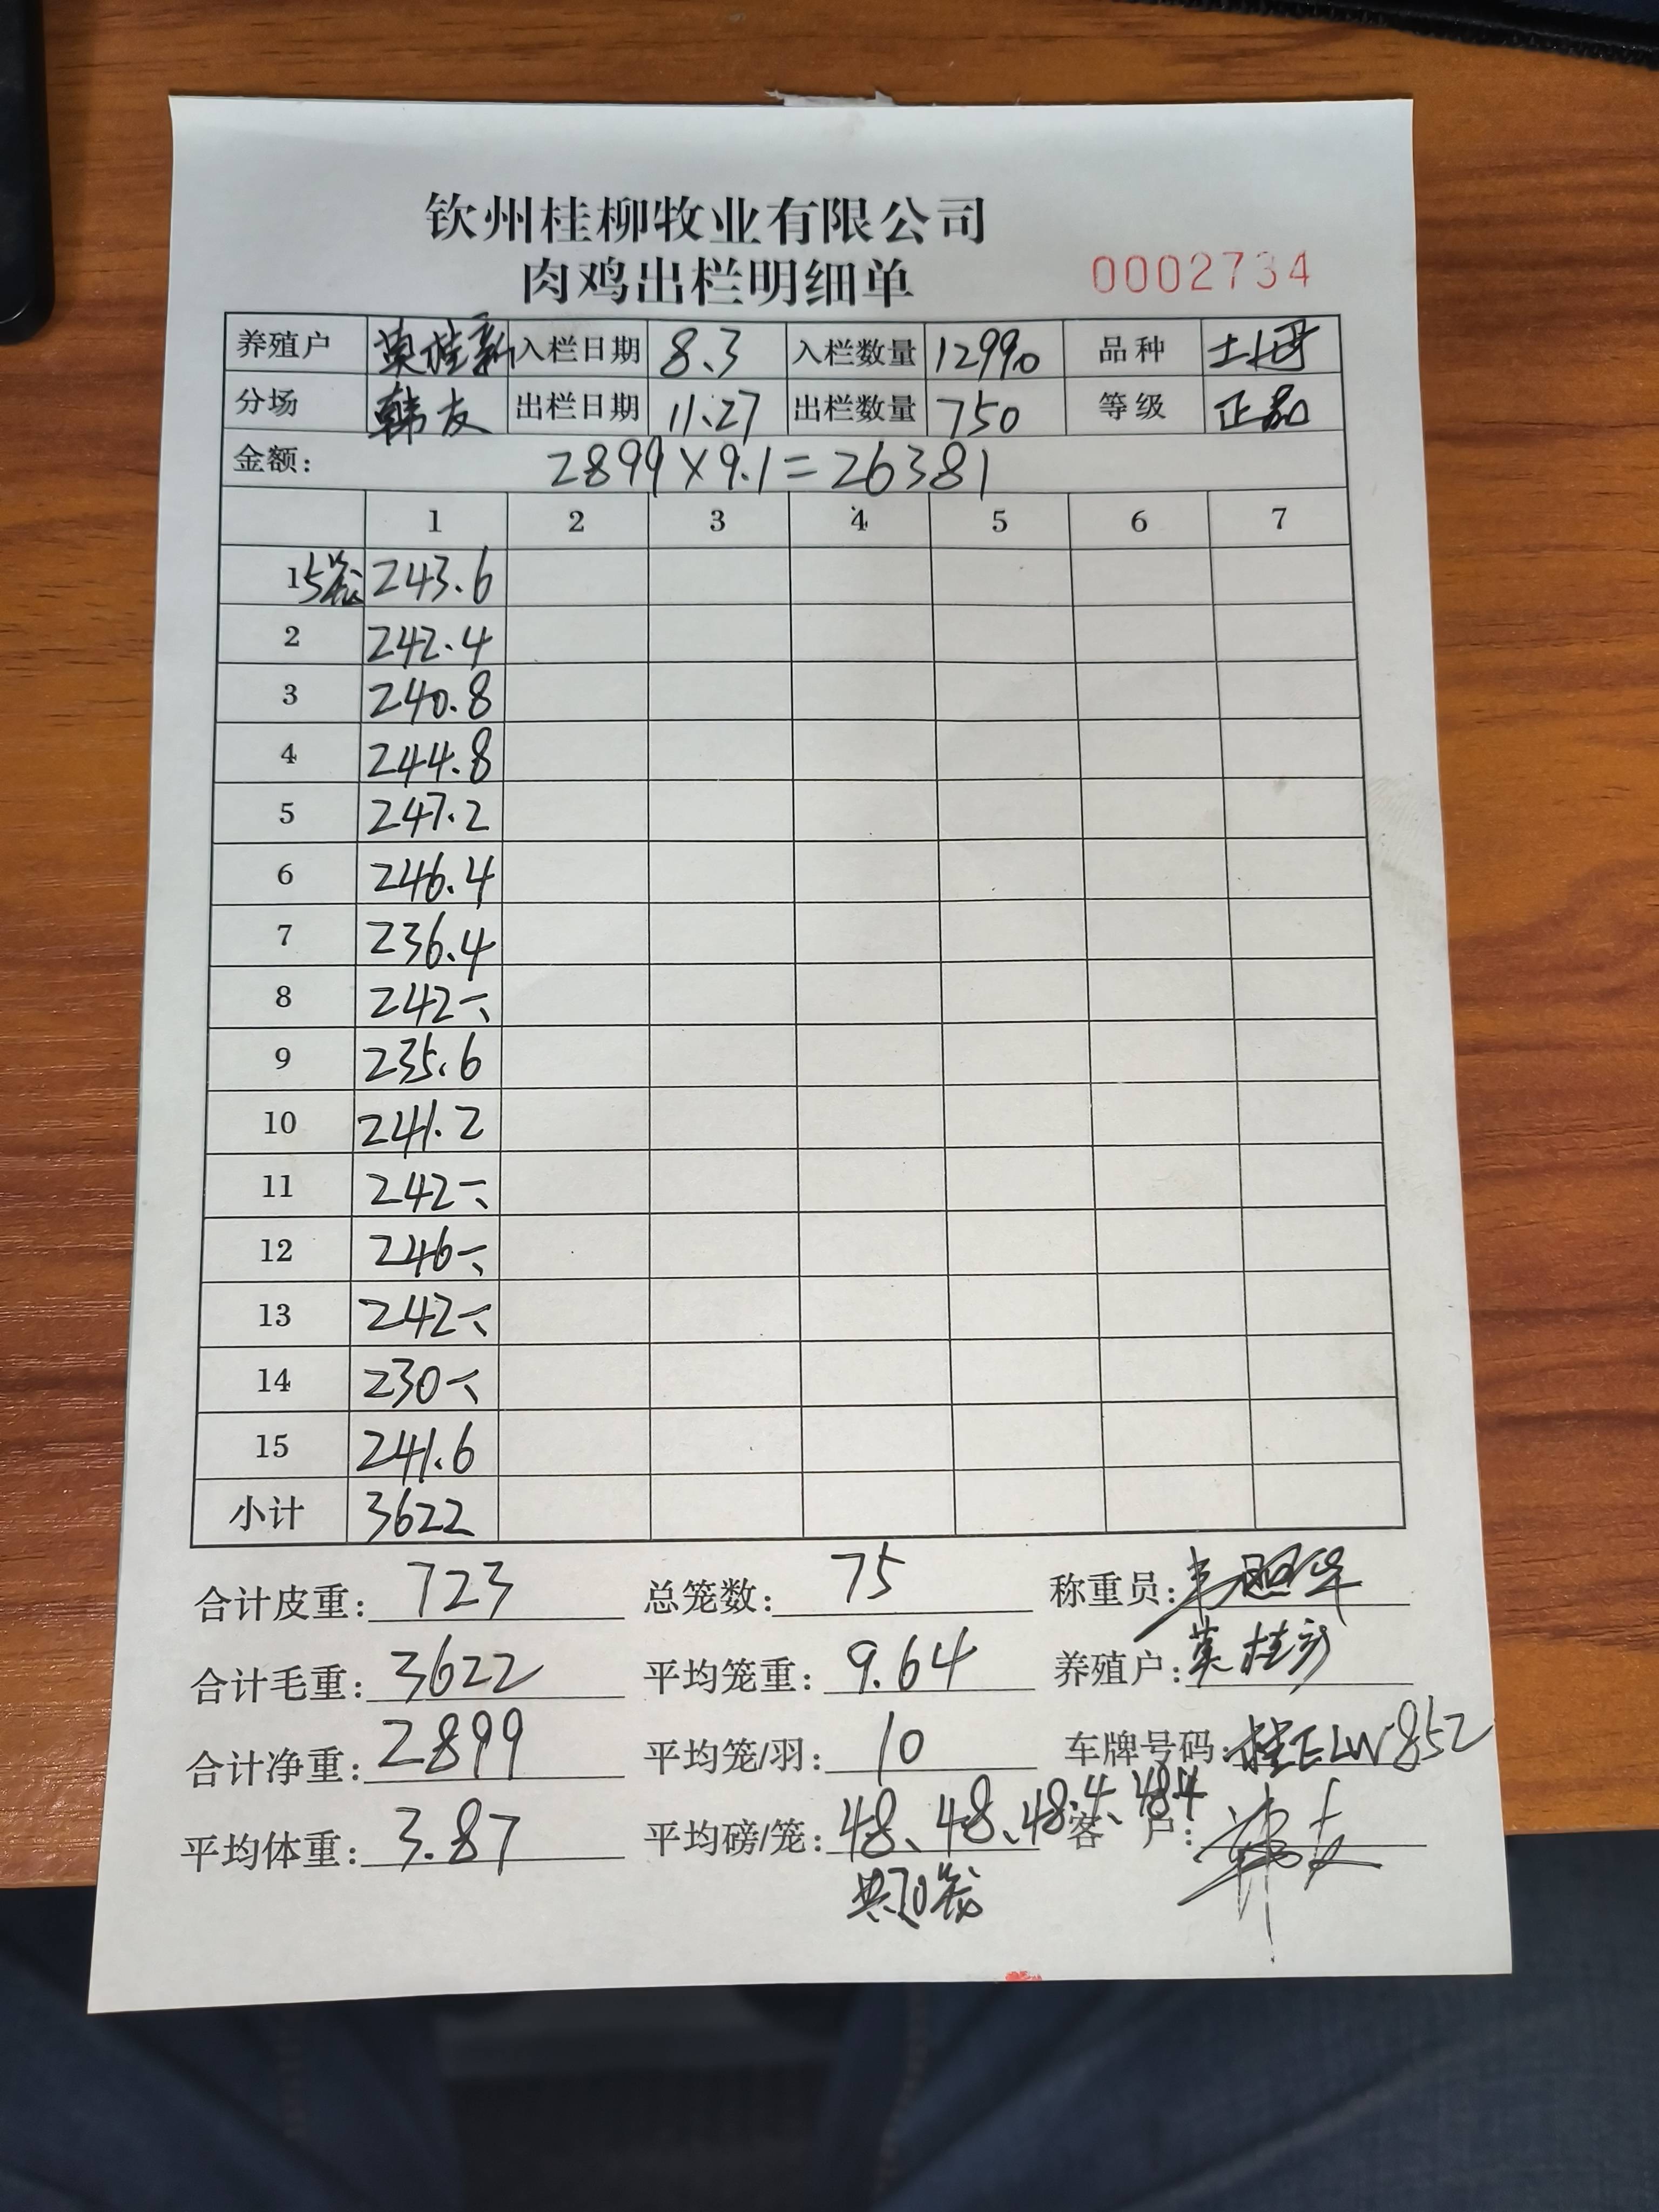 钦州桂柳牧业有限公司
肉鸡出栏明细单 0002734
养殖户 莫桂新 入栏日期 8.3 入栏数量 12990 品种 土母
分场 韩友 出栏日期 11.27 出栏数量 750 等级 正品
金额: 2899×9.1=26381
1 2 3 4 5 6 7
1 5笼 243.6
2 242.4
3 240.8
4 244.8
5 247.2
6 246.4
7 236.4
8 242-
9 235.6
10 241.2
11 242-
12 246-
13 242-
14 230-
15 241.6
小计 3622
合计皮重: 723 总笼数: 75 称重员:
合计毛重: 3622 平均笼重: 9.64 养殖户: 莫桂新
合计净重: 2899 平均笼/羽: 10 车牌号码: 桂ELW852
平均体重: 3.87 平均磅/笼: 48、48、48.4、48.4 客户: 韩友
共70笼